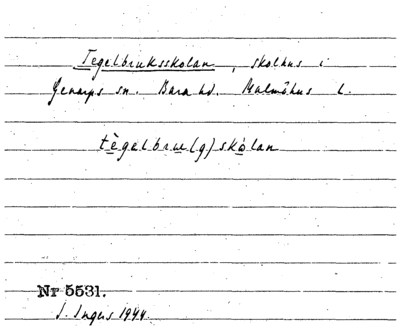 Tegelbruksskolan, skolhus i
Genarps sn. Bara hd. Malmöhus l.
tègelbru(g)skòlan
Nr 5531.
J. Ingers 1944.